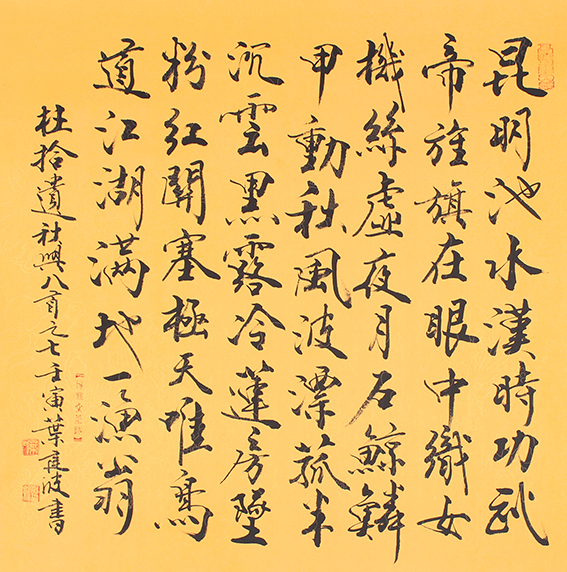 昆明池水漢時功武
帝旌旗在眼中織女
機絲虛夜月石鯨鱗
甲動秋風波漂菰米
沉雲黑露冷蓮房墜
粉紅關塞極天唯鳥
道江湖滿地一漁翁
杜拾遺秋興八首之七壬寅葉波書